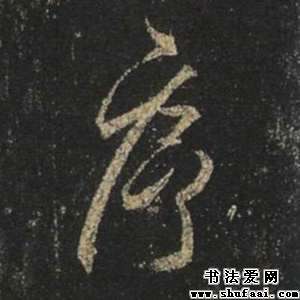 序
书法爱网
www.shufaai.com